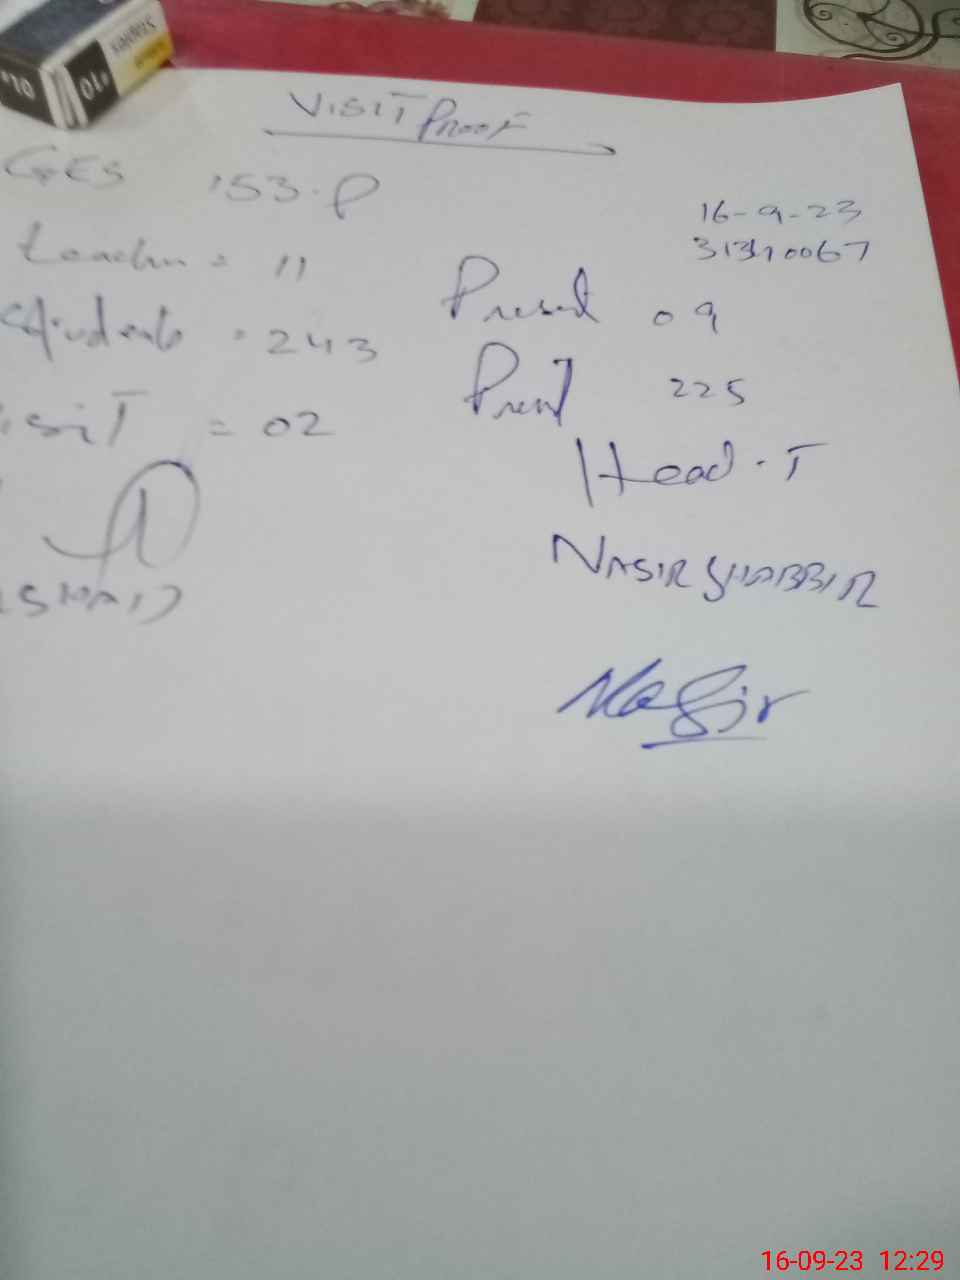 VISIT PROOF
GES 153.P
16-9-23
31340067
Teacher = 11
Present 09
Students = 243
Present 225
isiT = 02
Head.T
NASIR SHABBIR
Nasir
16-09-23 12:29